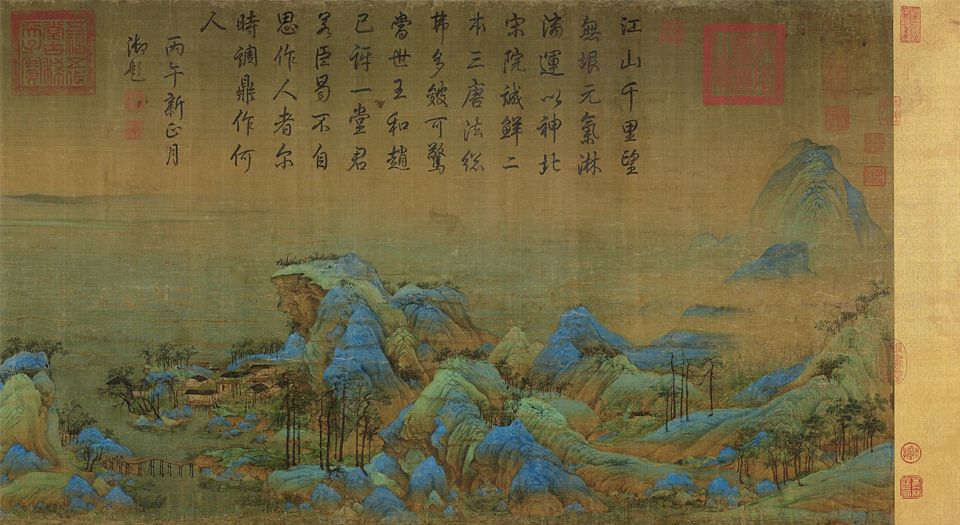 江山千里望
無垠元氣淋
漓運以神北
宋院誠鮮二
本三唐法総
弗多皴可驚
嘗世王和趙
已訝一堂君
若臣曷不自
思作人者尔
時調鼎作何
人
丙午新正月
御題